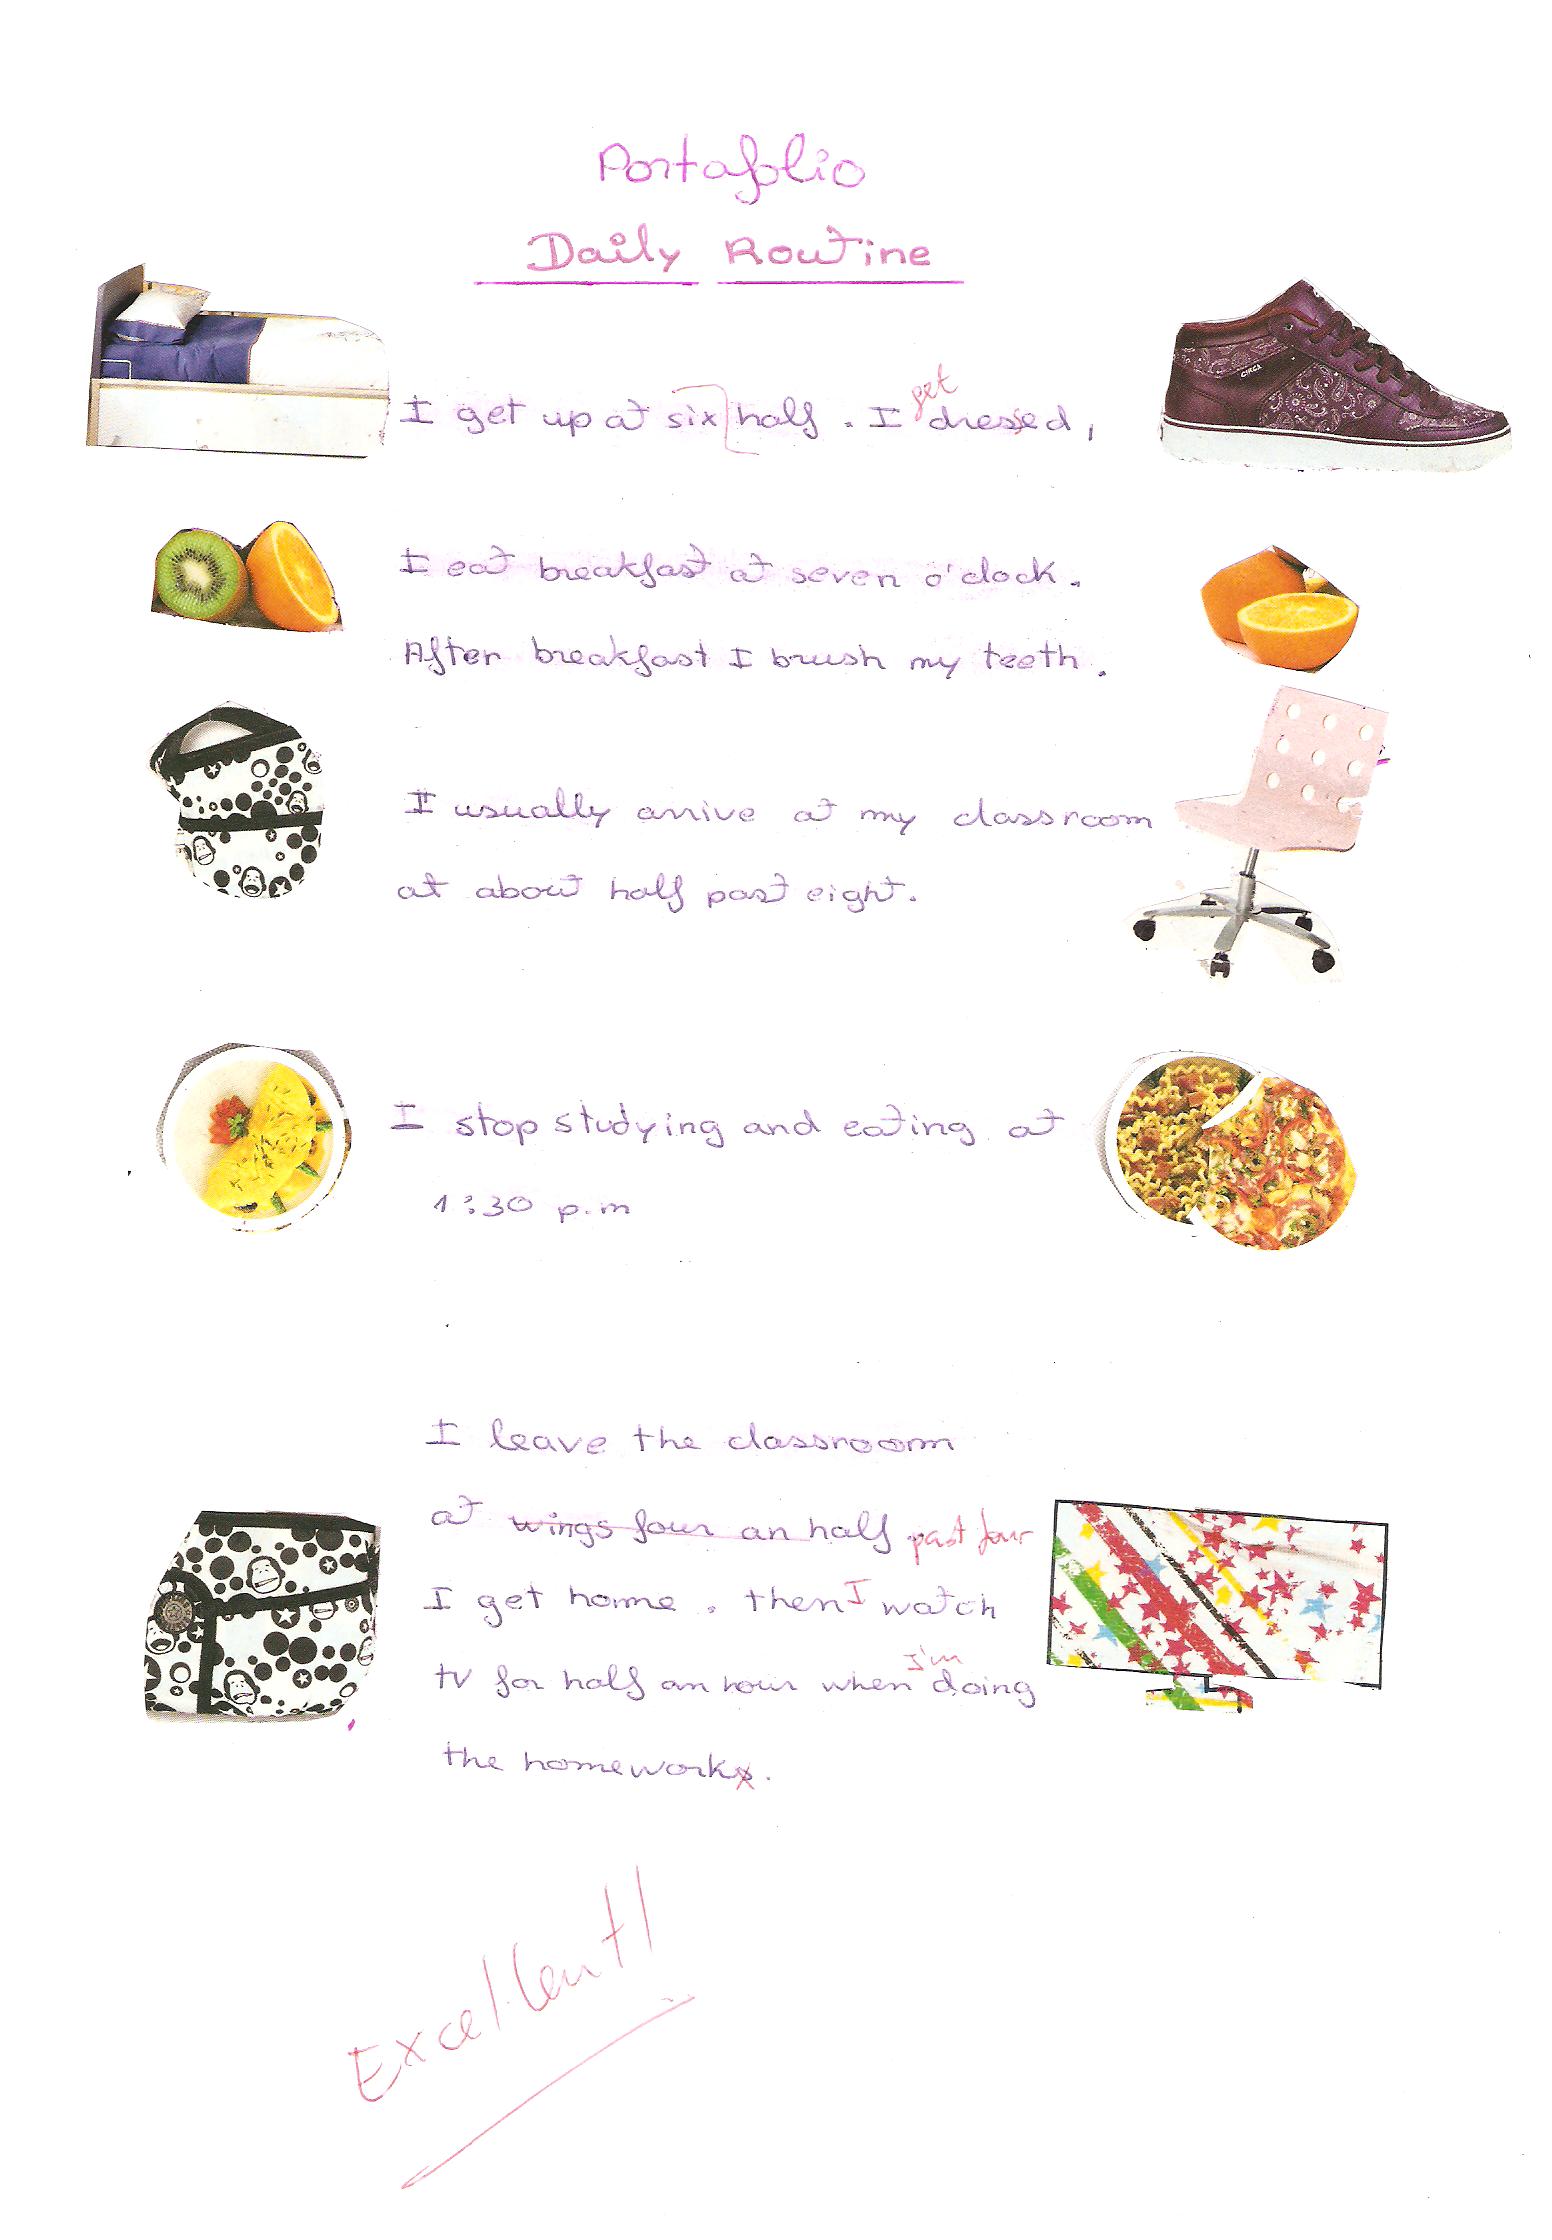 Portafolio
Daily Routine
I get up at six half. I get dressed,
CIRCA
I eat breakfast at seven o'clock.
After breakfast I brush my teeth.
I usually arrive at my classroom
at about half past eight.
I stop studying and eating at
1:30 p.m
I leave the classroom
at wings four an half past four
I get home. then I watch
tv for half an hour when I'm doing
the homeworks.
Excellent!